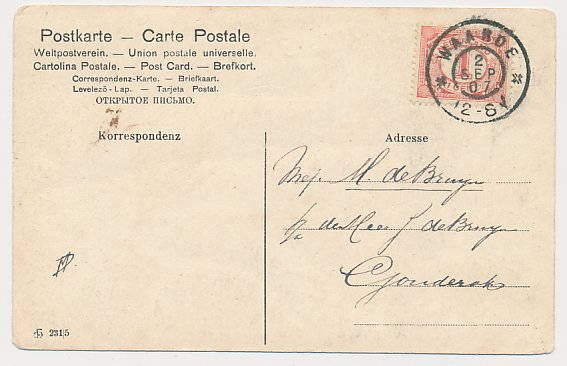 Postkarte — Carte Postale
Weltpostverein. — Union postale universelle.
Cartolina Postale. — Post Card. — Brefkort.
Correspondenz-Karte. — Briefkaart.
Levelező-Lap. — Tarjeta Postal.
ОТКРЫТОЕ ПИСЬМО.
WAARDE
2
SEP
07
12-8V
Korrespondenz
Adresse
Mej. M. de Bruyn
p/a den Heer J de Bruyn
2315